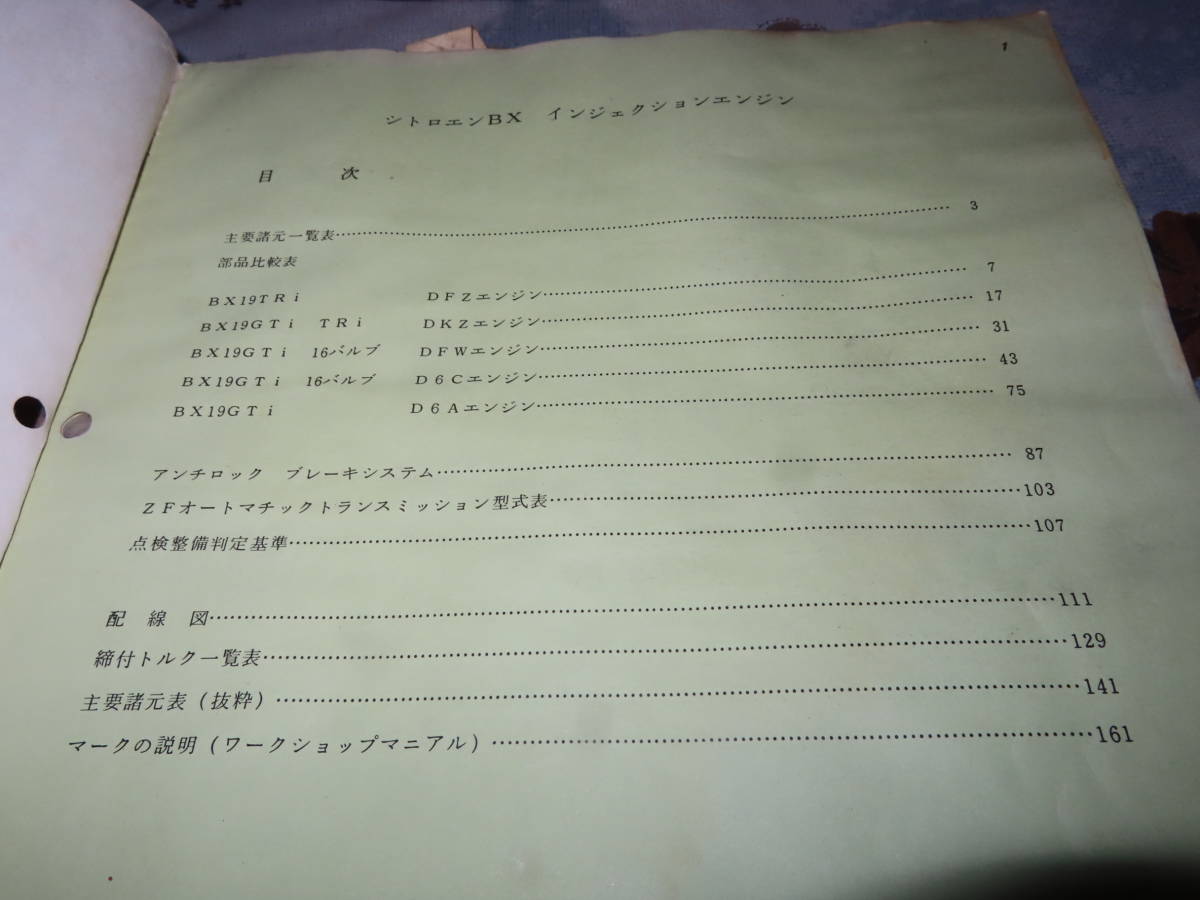 1
シトロエンBX インジェクションエンジン
目 次
主要諸元一覧表……………………3
部品比較表
BX19TRi DFZエンジン……………………7
BX19GTi TRi DKZエンジン……………………17
BX19GTi 16バルブ DFWエンジン……………………31
BX19GTi 16バルブ D6Cエンジン……………………43
BX19GTi D6Aエンジン……………………75
アンチロック ブレーキシステム……………………87
ZFオートマチックトランスミッション型式表……………………103
点検整備判定基準……………………107
配 線 図……………………111
締付トルク一覧表……………………129
主要諸元表(抜粋)……………………141
マークの説明(ワークショップマニアル)……………………161